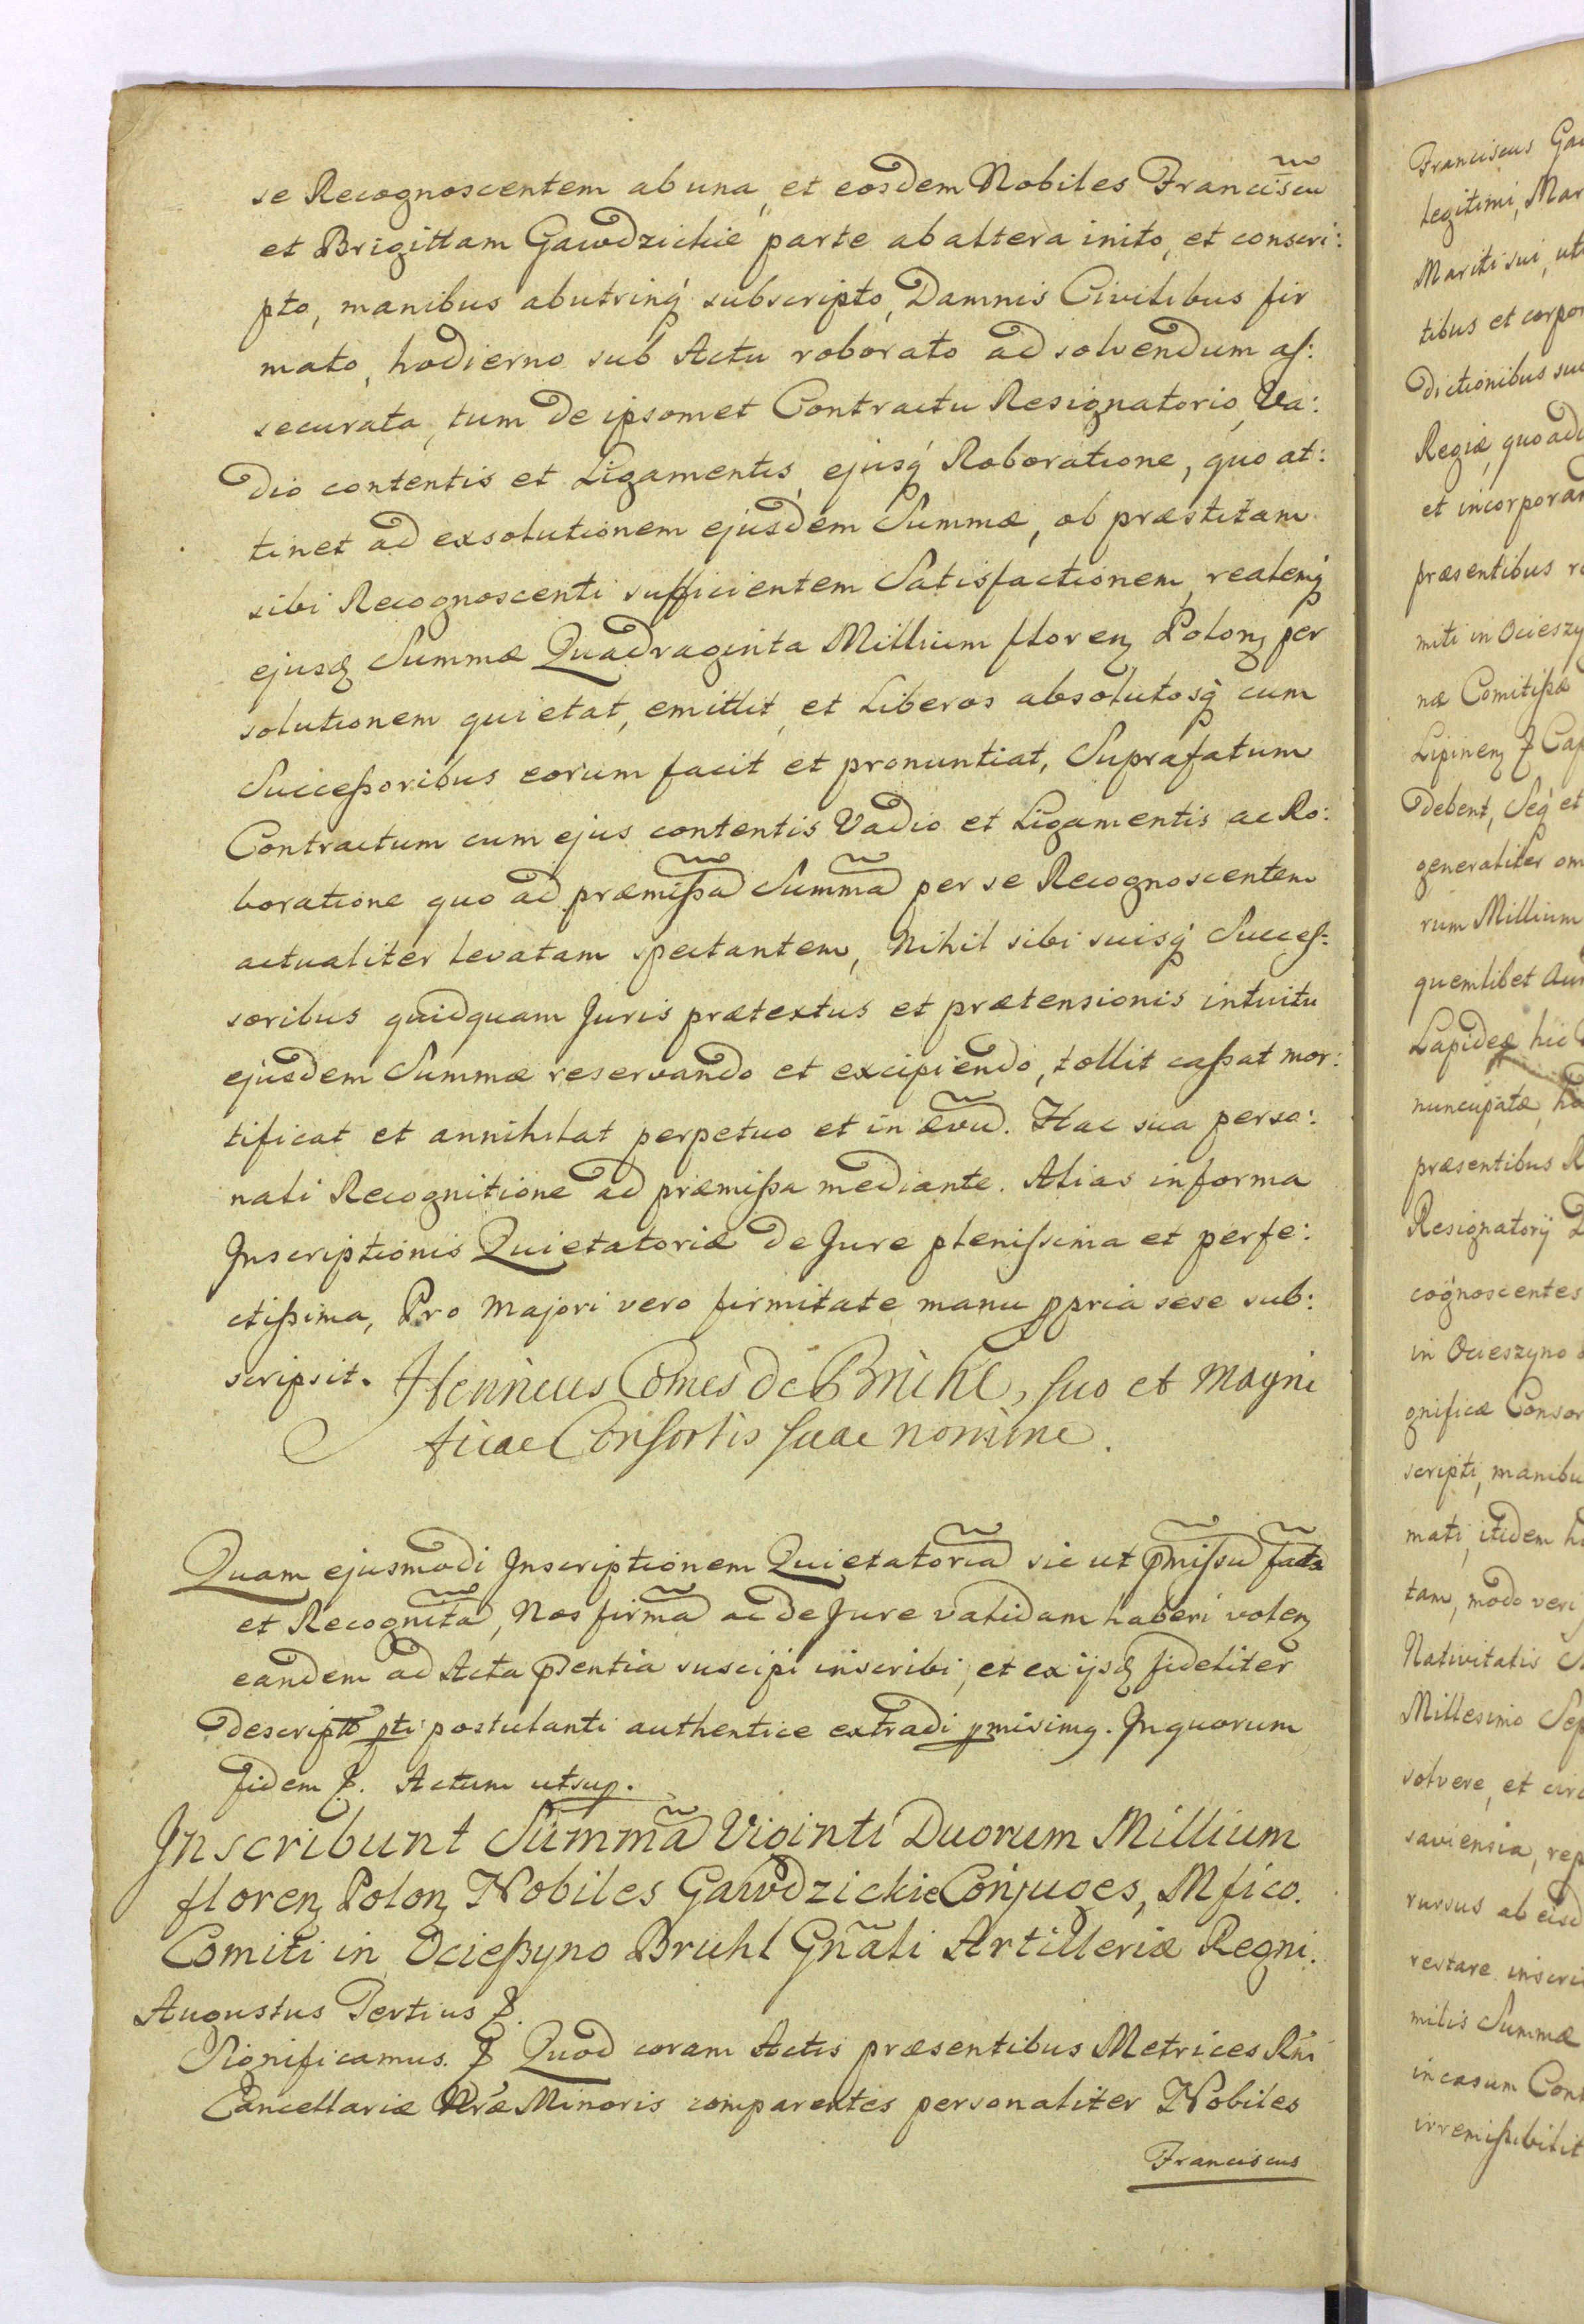 se Recognoscentem ab una, et eosdem Nobiles Franciscũ
et Brigittam Gawdzickie parte ab altera inito, et conscri:
pto, manibus ab utrinq́ subscripto, Damnis Civilibus fir
mato, hodierno sub Actu roborato ad solvendum as:
securata, tum de ipsomet Contractu Resignatorio, Va:
dio contentis et Ligamentis, ejusq́ Roboratione, quo at:
tinet ad exsolutionem ejusdem Summæ, ob præstitam
sibi Recognoscenti sufficientem Satisfactionem, realemq́
ejusq Summæ Quadraginta Millium floren Polon per
solutionem quietat, emittit, et Liberos absolutosq́ cum
Successoribus eorum facit et pronuntiat, Suprafatum
Contractum cum ejus contentis Vadio et Ligamentis ac Ro:
boratione quo ad præmissã Summã per se Recognoscentem
actualiter levatam spectantem, Nihil sibi suisq́ Succes:
soribus quidquam Juris prætextus et prætensionis intuitu
ejusdem Summæ reservando et excipiendo, tollit cassat mor:
tificat et annihilat perpetuo et in ævũ. Hac sua perso:
nali Recognitione ad præmissa mediante. Alias in forma
Inscriptionis Quietatoriæ de Jure plenissima et perfe:
ctissima, Pro majori vero firmitate manu ppria sese sub:
scripsit. Henricus Comes de Brühl, suo et Magni
ficae Consortis suae nomine.
Quam ejusmodi Inscriptionem Quietatoriã sic ut pmissũ facta
et Recognitã, Nos firmã ac de Jure validam haberi volen
eandem ad Acta psentia suscipi inscribi, et ex ijsq fideliter
descripto pti postulanti authentice extradi pmisimq. In quorum
fidem &. Actum ut sup.
Inscribunt Summã Viginti Duorum Millium
floren Polon Nobiles Gawdzickie Conjuges, Mfico.
Comiti in Ociessyno Bruhl Gñali Artilleriæ Regni.
Augustus Tertius &.
Significamus. & Quod coram Actis præsentibus Metrices Rni
Cancellariæ Nræ Minoris comparentes personaliter Nobiles
Franciscus
Franciscus
legitimi, Mar
Mariti sui, uti
tibus et corpor
dictionibus sui
Regiæ, quoad
et incorporan
præsentibus re
miti in Ocieszy
næ Comitissæ
Lipinen & Cap
debent, Seq́ et
generaliter om
rum Millium
quemlibet
Lapideæ hic
nuncupatæ, ho
præsentibus R
Resignatorij
cognoscentes
in Ocieszyno
gnificæ Consor
scripti, manibu
mati, itidem h
tam, modo veri
Nativitatis
Millesimo Sep
solvere, et
saviensia, rep
rursus ab eisd
restare inscri
milis Summæ
in casum Con
irremissibilit